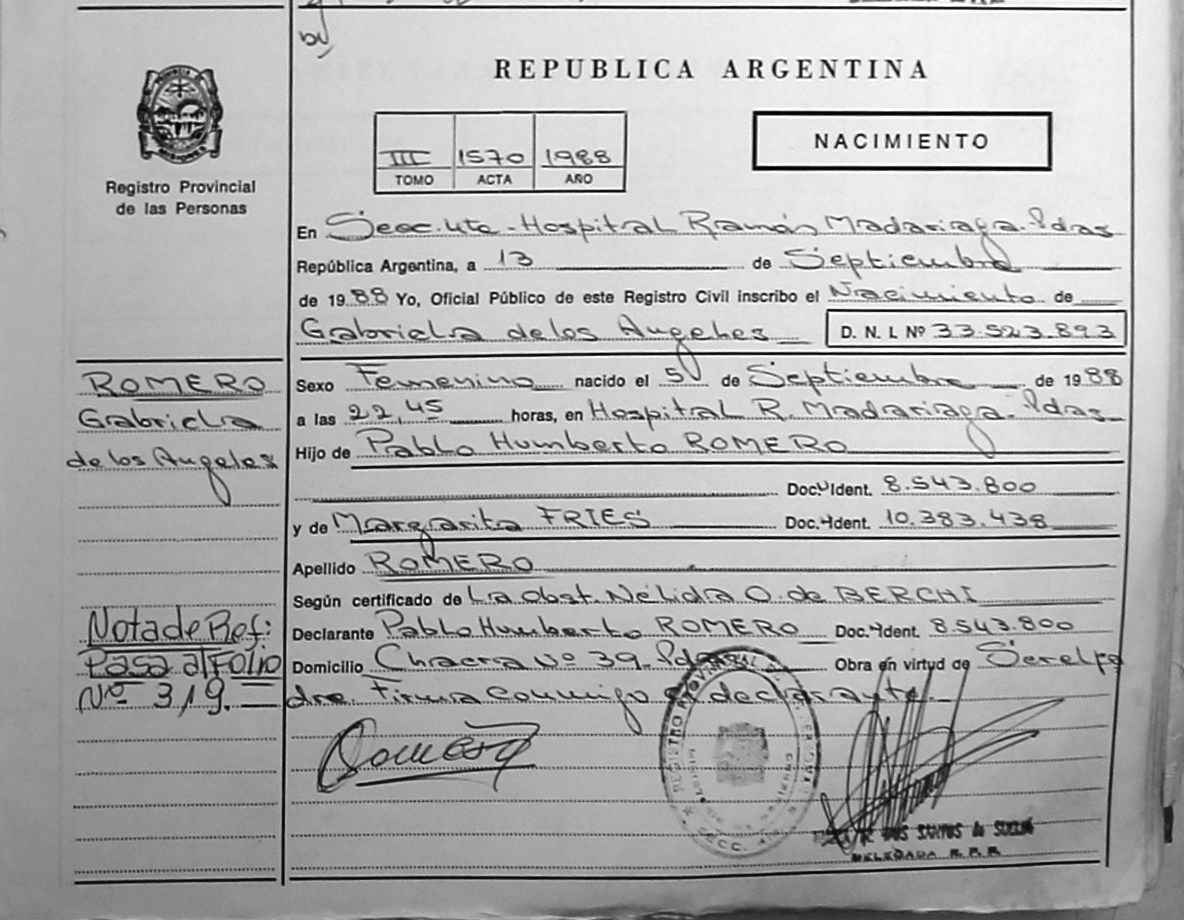 REPUBLICA ARGENTINA
NACIMIENTO
III 1570 1988
TOMO ACTA AÑO
Registro Provincial
de las Personas
En Secc. 4ta - Hospital Ramón Madariaga. Pdas
República Argentina, a 13 de Septiembre
de 1988 Yo, Oficial Público de este Registro Civil inscribo el Nacimiento de
Gabriela de los Angeles D. N. I. Nº 33.523.893
ROMERO
Gabriela
de los Angeles
Sexo Femenino nacido el 5 de Septiembre de 1988
a las 22,45 horas, en Hospital R. Madariaga. Pdas
Hijo de Pablo Humberto ROMERO
Doc. Ident. 8.543.800
y de Margarita FRIES Doc. Ident. 10.383.438
Apellido ROMERO
Según certificado de La obst. Nélida O. de BERCHI
Declarante Pablo Humberto ROMERO Doc. Ident. 8.543.800
Domicilio Chacra Nº 39. Pdas Obra en virtud de Ser el pa
dre. Firma conmigo el declarante.
Nota de Ref:
Pasa al Folio
Nº 319.
REGISTRO PROVINCIAL
DOS SANTOS de
DELEGADA R.P.P.